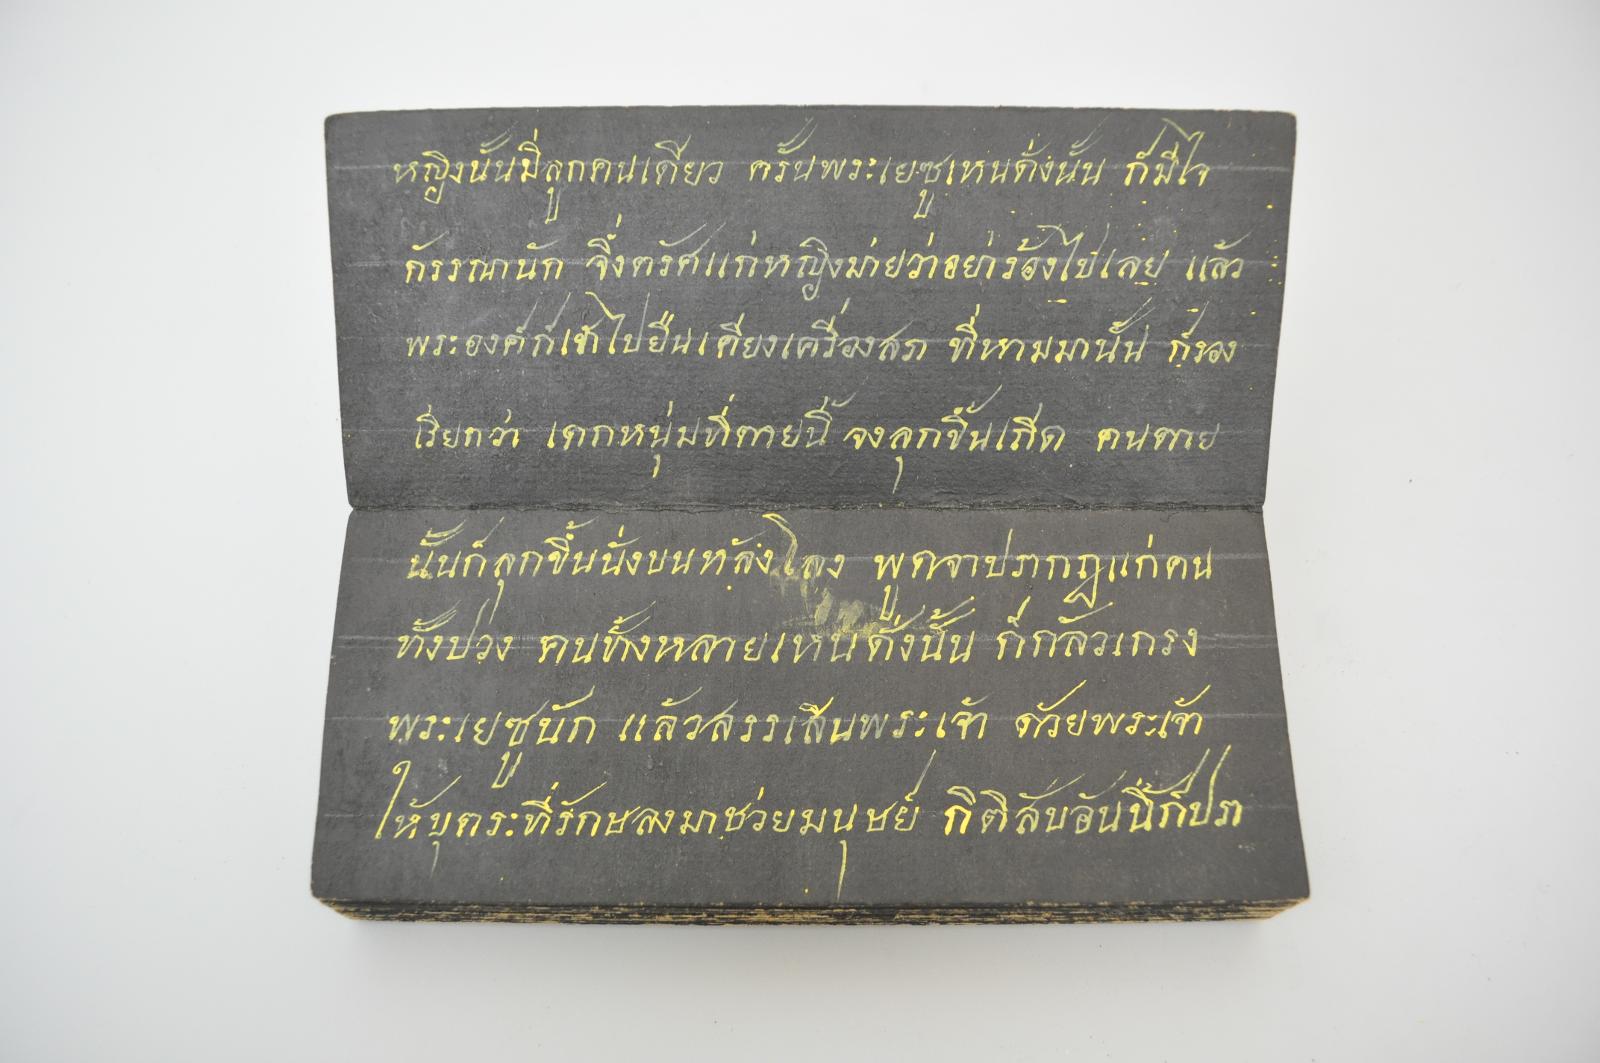 หญิงนั้นมีลูกคนเดียว ครั้นพระเยซูเหนดั่งนั้น ก็มีใจ
กัรรณานัก จึ่งตรัศแก่หญิงม่ายว่าอย่าร้องไปเลย แล้ว
พระองค์ก็เข้าไปยืนเคียงเครื่องสภ ที่หามมานั้น ก็รอง
เรียกว่า เดกหนุ่มที่ตายนี้ จงลุกขึ้นเถีด คนตาย
นั้นก็ลุกขึ้นนั่งบนหลังโลง พูดจาปรากฏแก่คน
ทังปวง คนทั้งหลายเหนดั่งนั้น ก็กลัวเกรง
พระเยซูนัก แล้วสรรเสีนพระเจ้า ด้วยพระเจ้า
ให้บุตระที่รักษลงมาช่วยมนุษย์ กิติสับอันนี้ก็ปรา